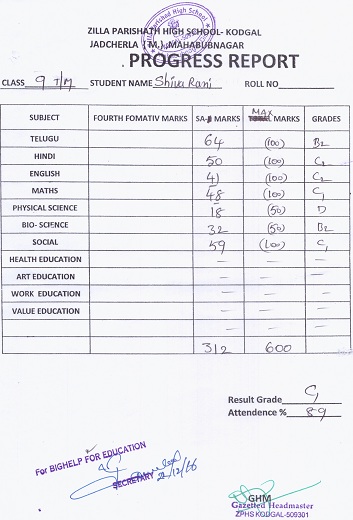 Zilla Parishath High School
ZILLA PARISHATH HIGH SCHOOL- KODGAL
JADCHERLA (T.M.), MAHABUBNAGAR
PROGRESS REPORT
CLASS 9 T/M STUDENT NAME Shiva Rani ROLL NO
SUBJECT FOURTH FOMATIV MARKS SA-II MARKS MAX MARKS GRADES
TELUGU 64 (100) B2
HINDI 50 (100) C1
ENGLISH 41 (100) C2
MATHS 48 (100) C1
PHYSICAL SCIENCE 18 (50) D
BIO- SCIENCE 32 (50) B2
SOCIAL 59 (100) C1
HEALTH EDUCATION — — —
ART EDUCATION — — —
WORK EDUCATION — — —
VALUE EDUCATION — — —
— — —
312 600
Result Grade C1
Attendence % 89
For BIGHELP FOR EDUCATION
SECRETARY
GHM
Gazetted Headmaster
ZPHS KODGAL-509301